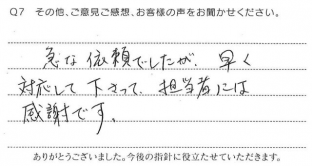 Q7 その他、ご意見ご感想、お客様の声をお聞かせください。
急な依頼でしたが、早く
対応して下さって、担当者には
感謝です。
ありがとうございました。今後の指針に役立たせていただきます。